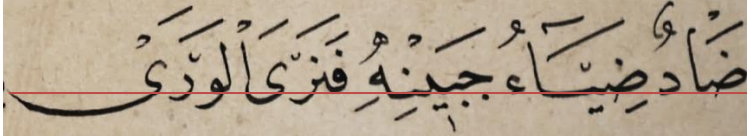 ضَادٌ ضِيَآءُ جَبِيْنِهِ فَتَرَى الْوَرَىٰ